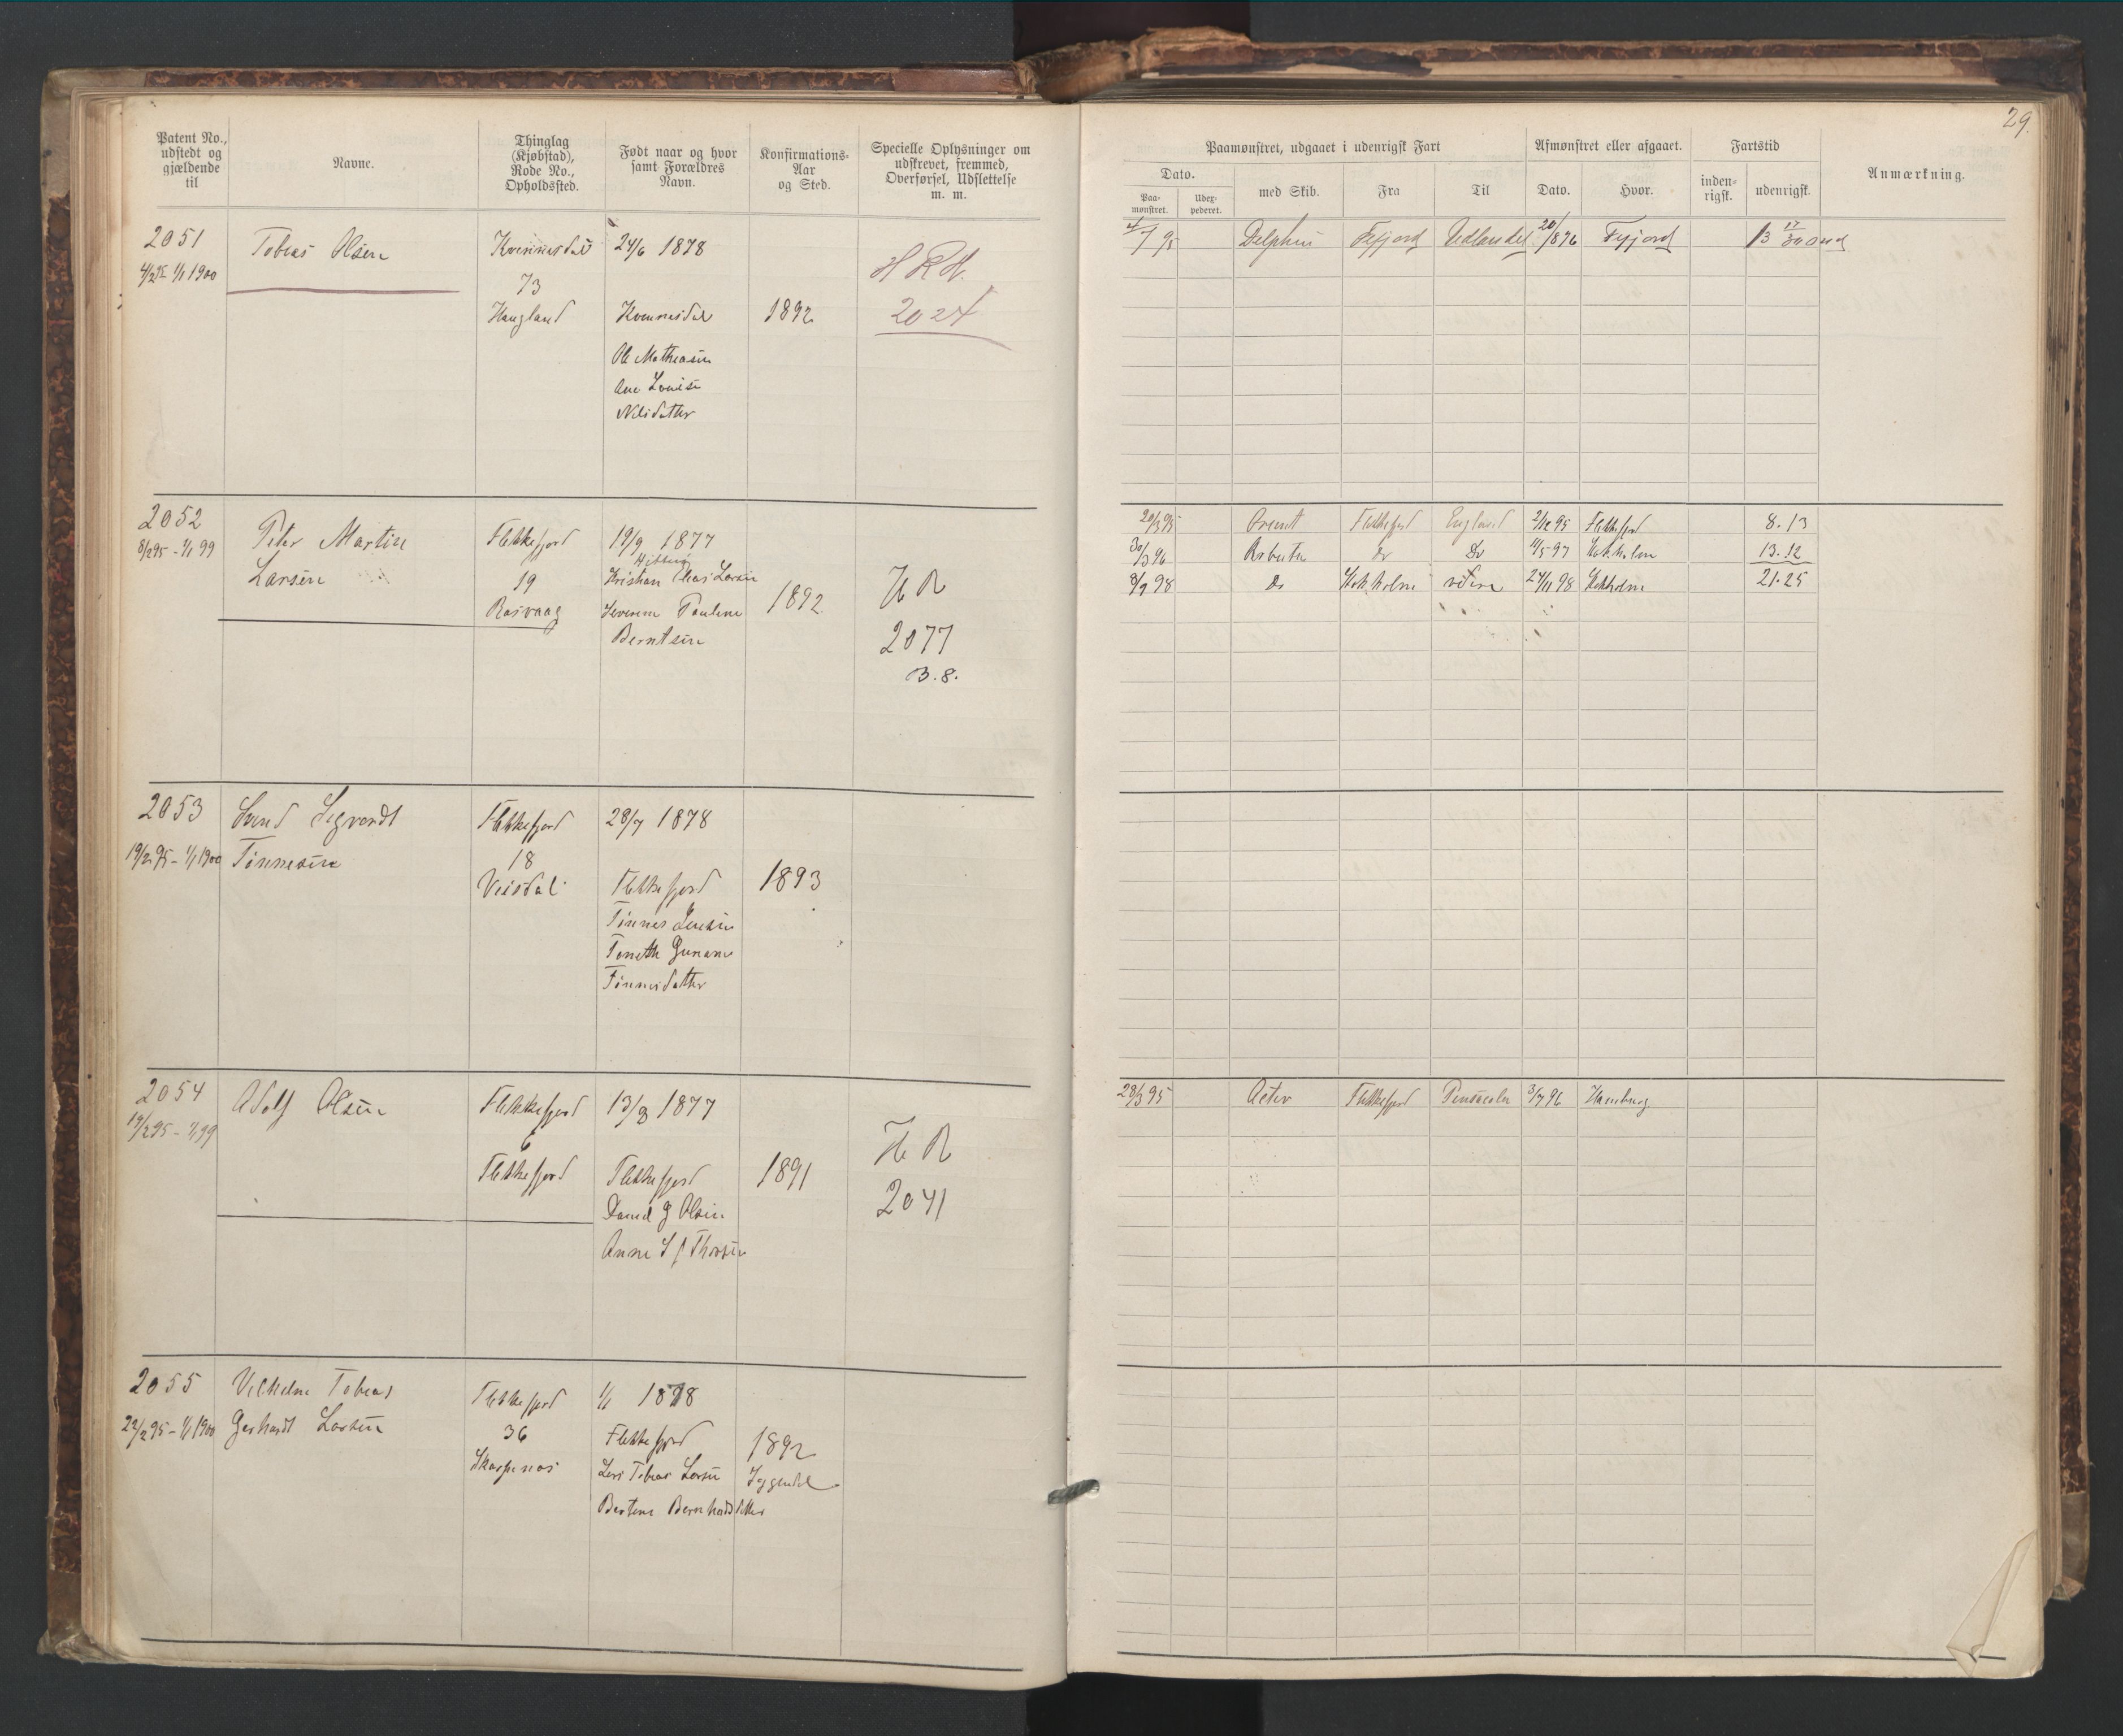 29.
Patent No., udstedt og gjældende til
Navne.
Thinglag (Kjøbstad), Rode No., Opholdssted.
Født naar og hvor samt Forældres Navn.
Konfirmations-Aar og Sted.
Specielle Oplysninger om udskrevet, fremmed, Overførsel, Udslettelse m. m.
Paamønstret, udgaaet i udenrigsk Fart
Dato.
Paa-mønstret.
med Skib.
Fra
Til
Afmønstret eller afgaaet.
Dato.
Hvor.
Fartstid
inden-rigsk.
udenrigsk.
Anmærkning.
2051
Tobias Olsen
Kvinnesdal
24/6 1878
4/2 95 1/1 1900
73
Haugland
Kvinnesdal
1892
2024
Ole Mathiasen
Ane Louise
Nilsdatter
Delphin
Fefjord
Udlandet
20/8 96
Fefjord
2052
Peter Martin
Flekkefjord
19/9 1877
8/2 95 - 1/1 99
Larsen
19
Kristian Elias Larsen
Rasvaag
Severine Pauline
1892
H R
Berntsen
2077
3.8.
20/3 95
Flekkefjord
England
Flekkefjord
8.13
30/3 96
Do
Do
11/5 97
13.12
8/9 98
Do
24/11 98
21.25
2053
Svend Sigvardt
Flekkefjord
28/7 1878
19/2 95 - 1/1 1900
Tønnesen
18
Veisdal
Flekkefjord
1893
Tønnes Jensen
Tønnesdatter
2054
Adolf Olsen
Flekkefjord
13/8 1877
19/2 95 - 1/1 99
6
Flekkefjord
Flekkefjord
1891
H R
Daniel G Olsen
2041
Anne S J Thorsen
28/3 95
Activ
Flekkefjord
Pensacola
3/7 96
Hamburg
2055
Vilhelm Tobias
Flekkefjord
1/1 1878
22/2 95 - 1/1 1900
Gerhardt Larsen
36
Flekkefjord
1892
Skarpenes
Lars Tobias Larsen
Bertine Bernhardsdatter